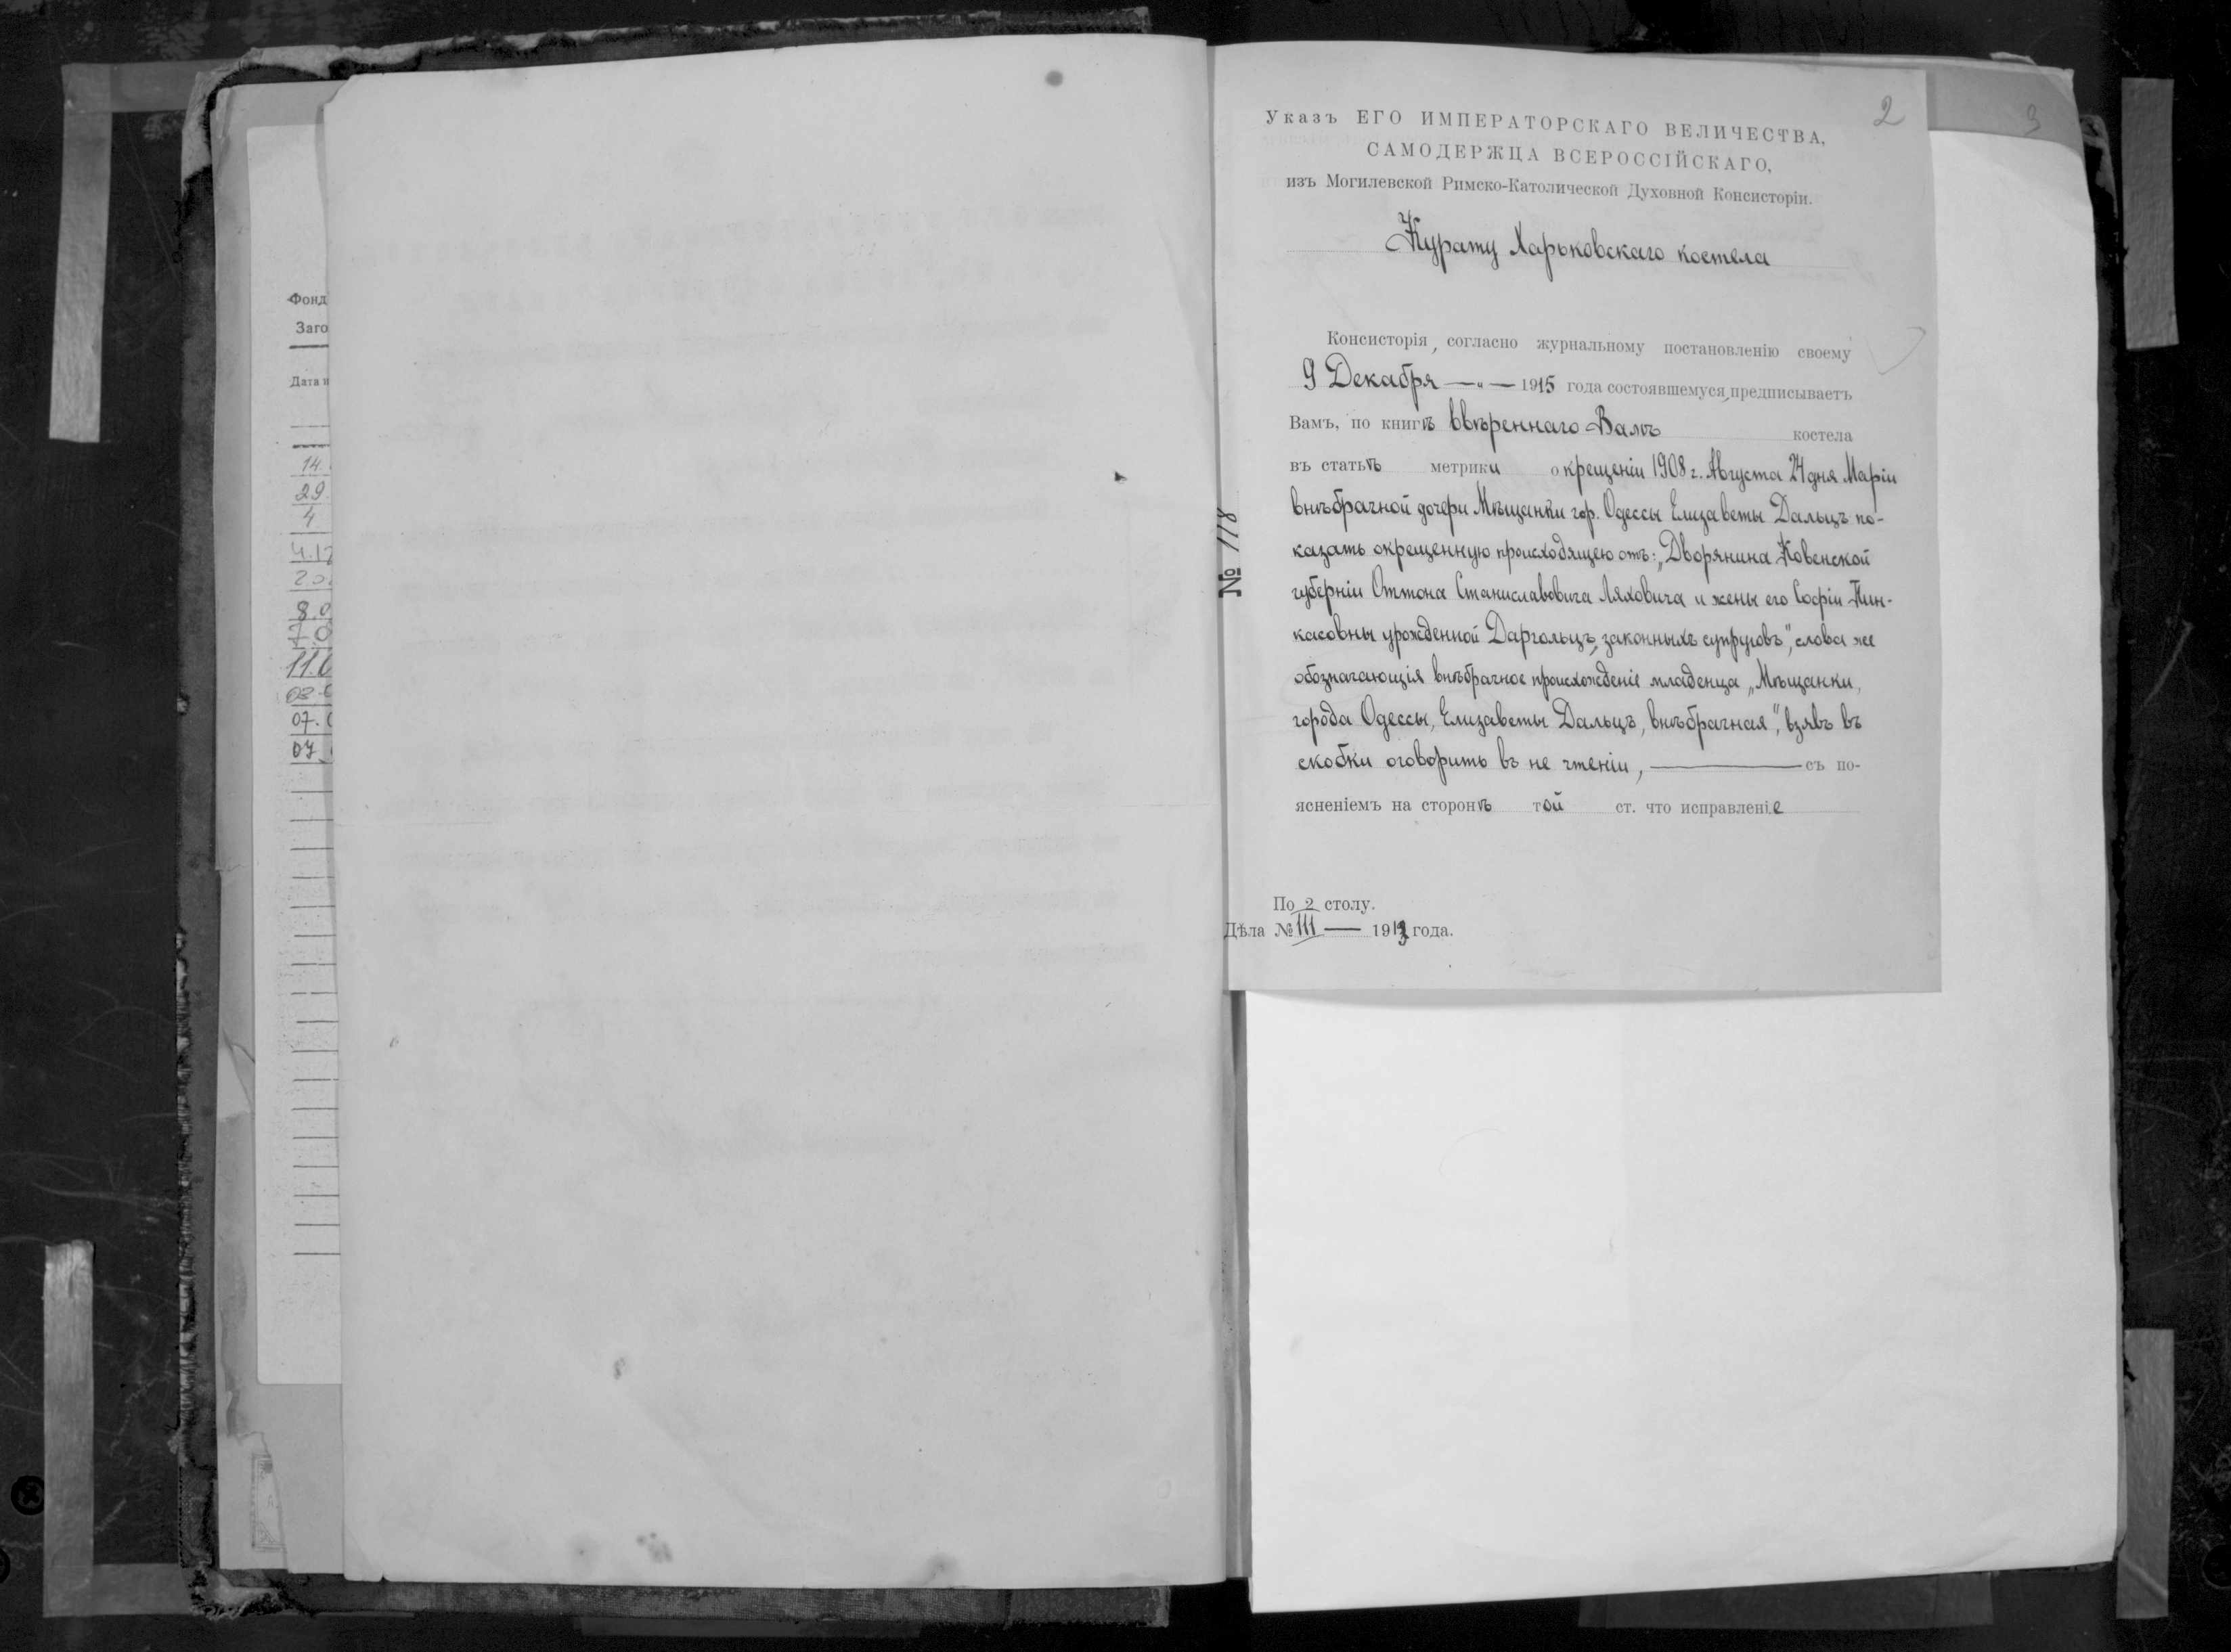 Фонд
Заго
Дата и
14.
29.
4
4.12
8.0
7.0
11.0
02.0
07.0
07.
2
3
Указъ ЕГО ИМПЕРАТОРСКАГО ВЕЛИЧЕСТВА,
САМОДЕРЖЦА ВСЕРОССІЙСКАГО,
изъ Могилевской Римско-Католической Духовной Консисторіи.
Курату Харьковскаго костела
Консисторія, согласно журнальному постановленію своему
9 Декабря —„— 1915 года состоявшемуся, предписываетъ
Вамъ, по книгѣ ввѣреннаго Вамъ костела
въ статьѣ метрики о крещеніи 1908 г. Августа 24 дня Маріи
внѣбрачной дочери Мѣщанки гор. Одессы Елизаветы Дальцъ по-
казать окрещенную происходящею отъ: „Дворянина Ковенской
губерніи Оттона Станиславовича Ляховича и жены его Софіи Пин-
касовны урожденной Даргольцъ, законныхъ супруговъ", слова же
обозначающія внѣбрачное происхожденіе младенца „Мѣщанки,
города Одессы, Елизаветы Дальцъ, внѣбрачная", взявъ въ
скобки оговорить въ не чтеніи, — съ по-
ясненіемъ на сторонѣ той ст. что исправленіе
№ 118
По 2 столу.
Дѣла № 111 — 1913 года.